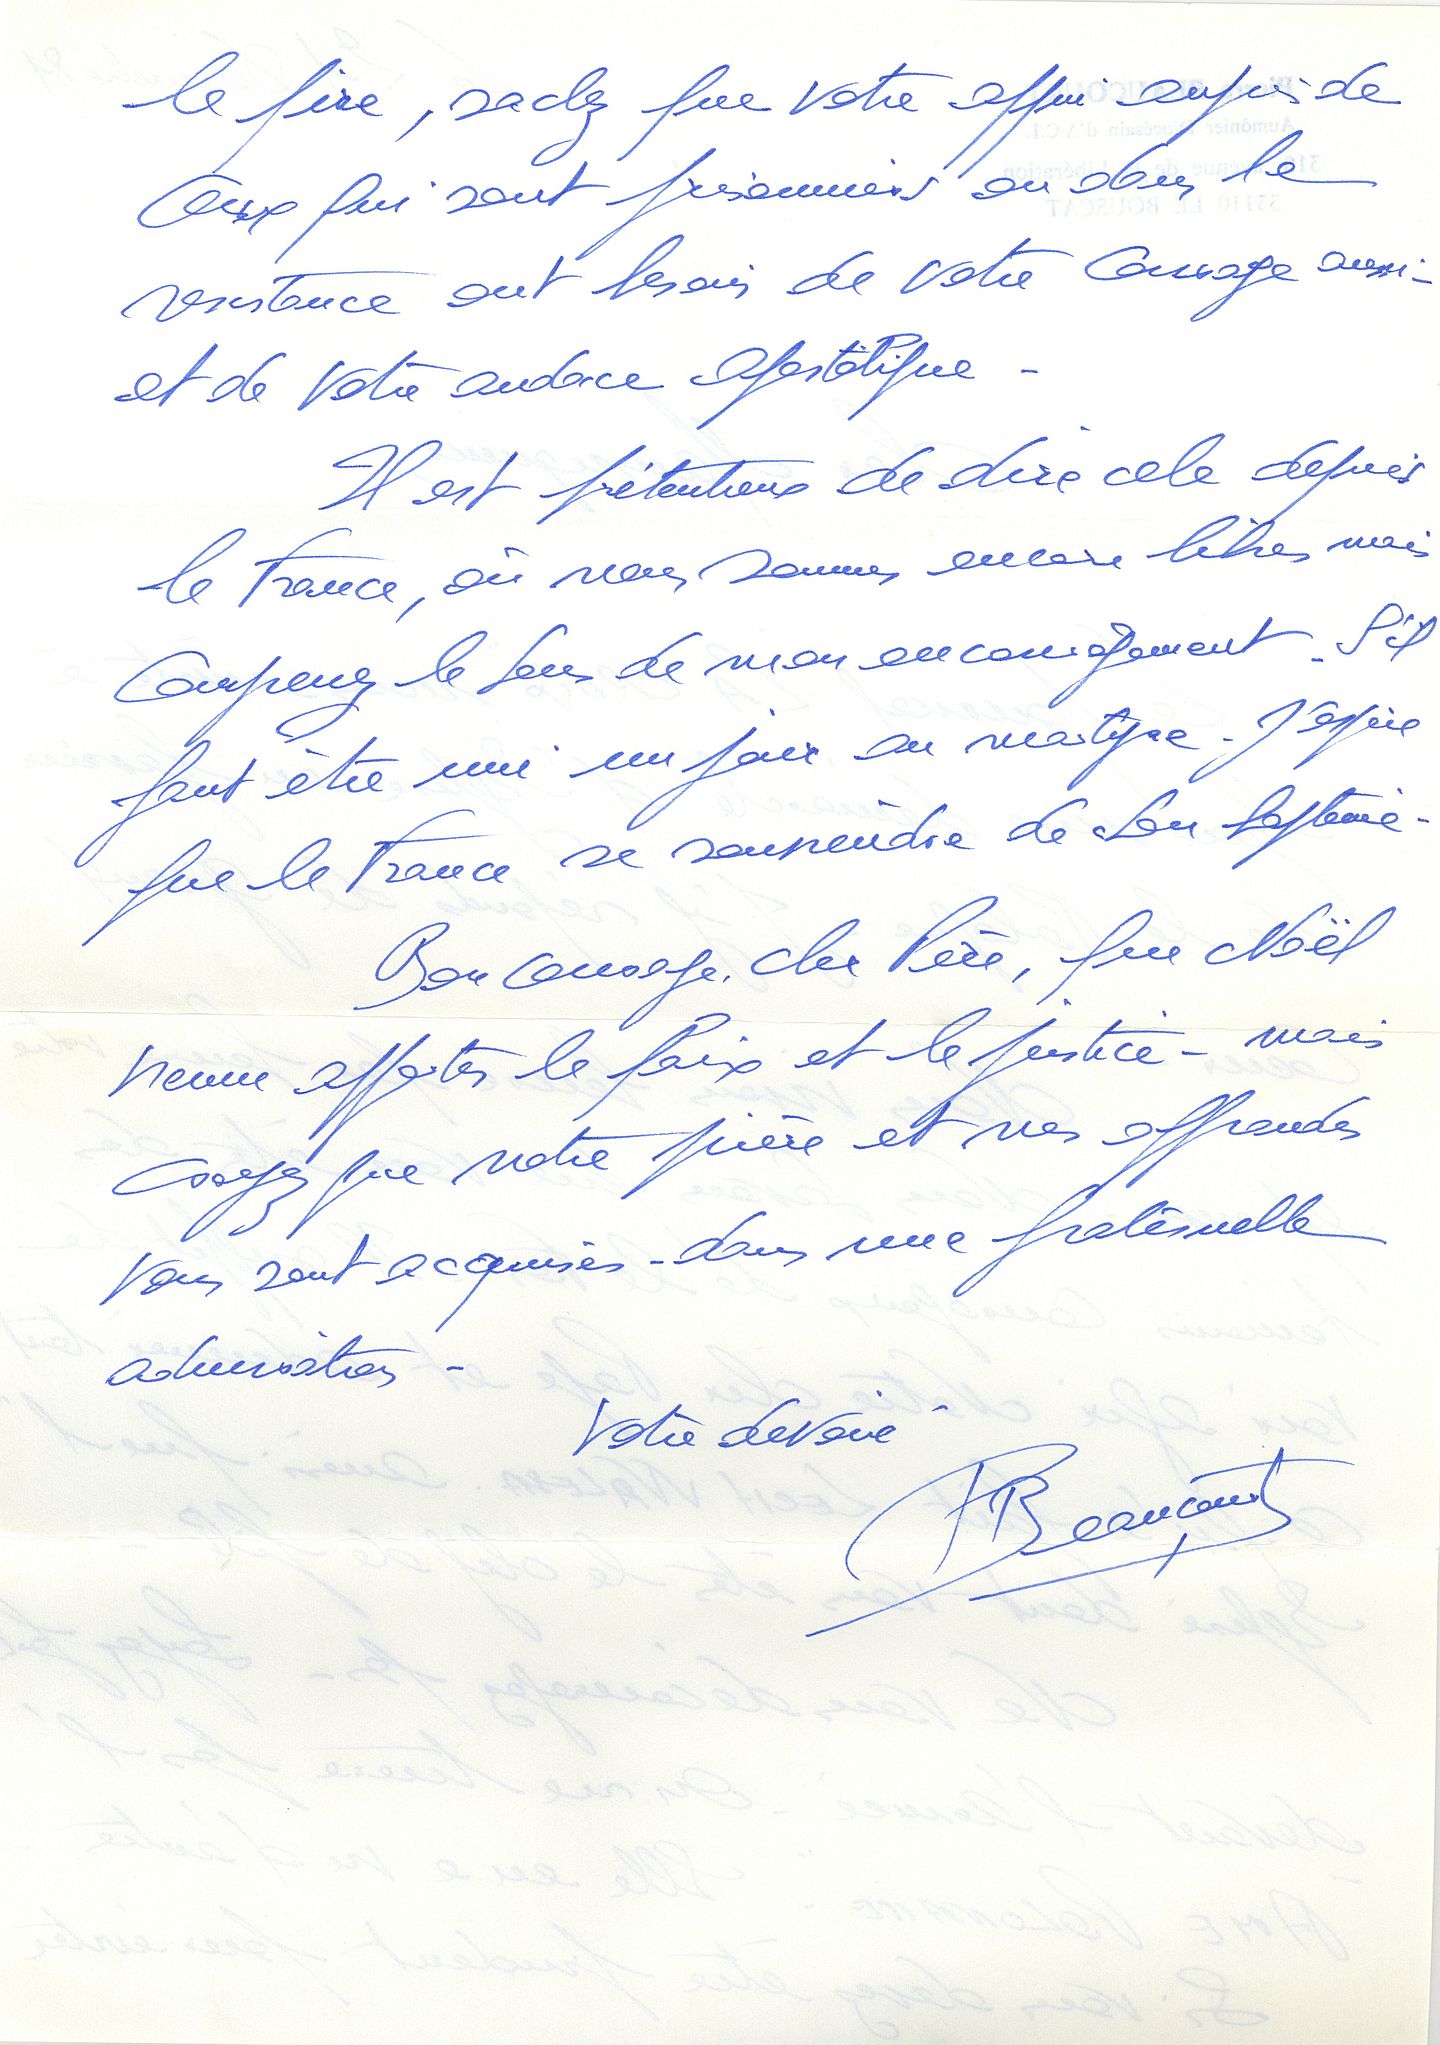 le pire, sachez que votre appui auprès de
ceux qui sont prisonniers ou dans la
resistance ont besoin de votre courage aussi
et de votre audace apostolique -
Il est prétentieux de dire cela depuis
la France, où nous sommes encore libres mais
comprenez le sens de mon encouragement. S'il
faut être uni un jour au martyre - J'espère
que la France se souviendra de son baptême -
Bon courage, cher Père, que Noël
vienne apporter la paix et la justice - mais
croyez que notre prière et nos offrandes
vous sont acquises - dans une fraternelle
admiration -
Votre dévoué
PBeaucourt